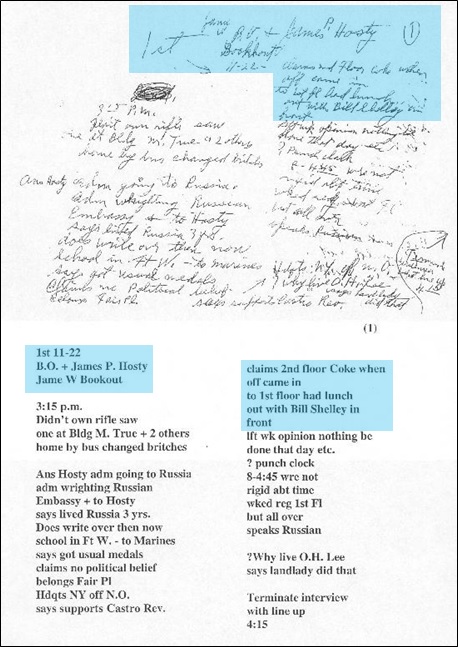 1st
B.O. + James P. Hosty
Bookhout
11-22-
(1)
3:15 P.M.
Didn't own rifle saw
one at Bldg M. True + 2 others
home by bus changed britches
Ans Hosty adm going to Russia
adm wrighting Russian
Embassy + to Hosty
says lived Russia 3 yrs.
Does write over then now
school in Ft W. - to Marines
says got usual medals
Claims no Political belief
belongs Fair Pl
claims 2nd Floor Coke when
off came in
to 1st fl had lunch
out with Bill Shelley in
front
lft wk opinion nothing be
done that day etc.
? Punch clock
8-4:45 wre not
rigid abt time
wked reg 1st Fl
but all over
speaks Russian
Hdqts NY off N.O.
? Why live O.H. Lee
says landlady
did that
says supports Castro Rev.
(1)
1st 11-22
B.O. + James P. Hosty
Jame W Bookout
3:15 p.m.
Didn't own rifle saw
one at Bldg M. True + 2 others
home by bus changed britches
Ans Hosty adm going to Russia
adm wrighting Russian
Embassy + to Hosty
says lived Russia 3 yrs.
Does write over then now
school in Ft W. - to Marines
says got usual medals
claims no political belief
belongs Fair Pl
Hdqts NY off N.O.
says supports Castro Rev.
claims 2nd floor Coke when
off came in
to 1st floor had lunch
out with Bill Shelley in
front
lft wk opinion nothing be
done that day etc.
? punch clock
8-4:45 wre not
rigid abt time
wked reg 1st Fl
but all over
speaks Russian
?Why live O.H. Lee
says landlady did that
Terminate interview
with line up
4:15